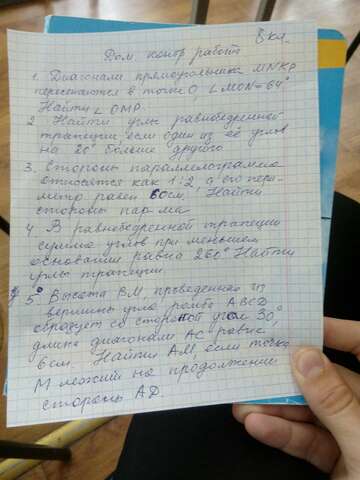 8 кл.
Дом. контр работа
1. Диагонали прямоугольника MNKP
пересекаются в точке O ∠MON=64°
Найти ∠OMP.
2. Найти углы равнобедренной
трапеции, если один из её углов
на 20° больше другого
3. Стороны параллелограмма
относятся как 1:2, а его пери-
метр равен 60см. Найти
стороны пар-ма
4. В равнобедренной трапеции
сумма углов при меньшем
основании равна 260° Найти
углы трапеции.
5° Высота BM, проведенная из
вершины угла ромба ABCD
образует со стороной угол 30°,
длина диагонали AC равна
6см. Найти AM, если точка
M лежит на продолжении
стороны AD.